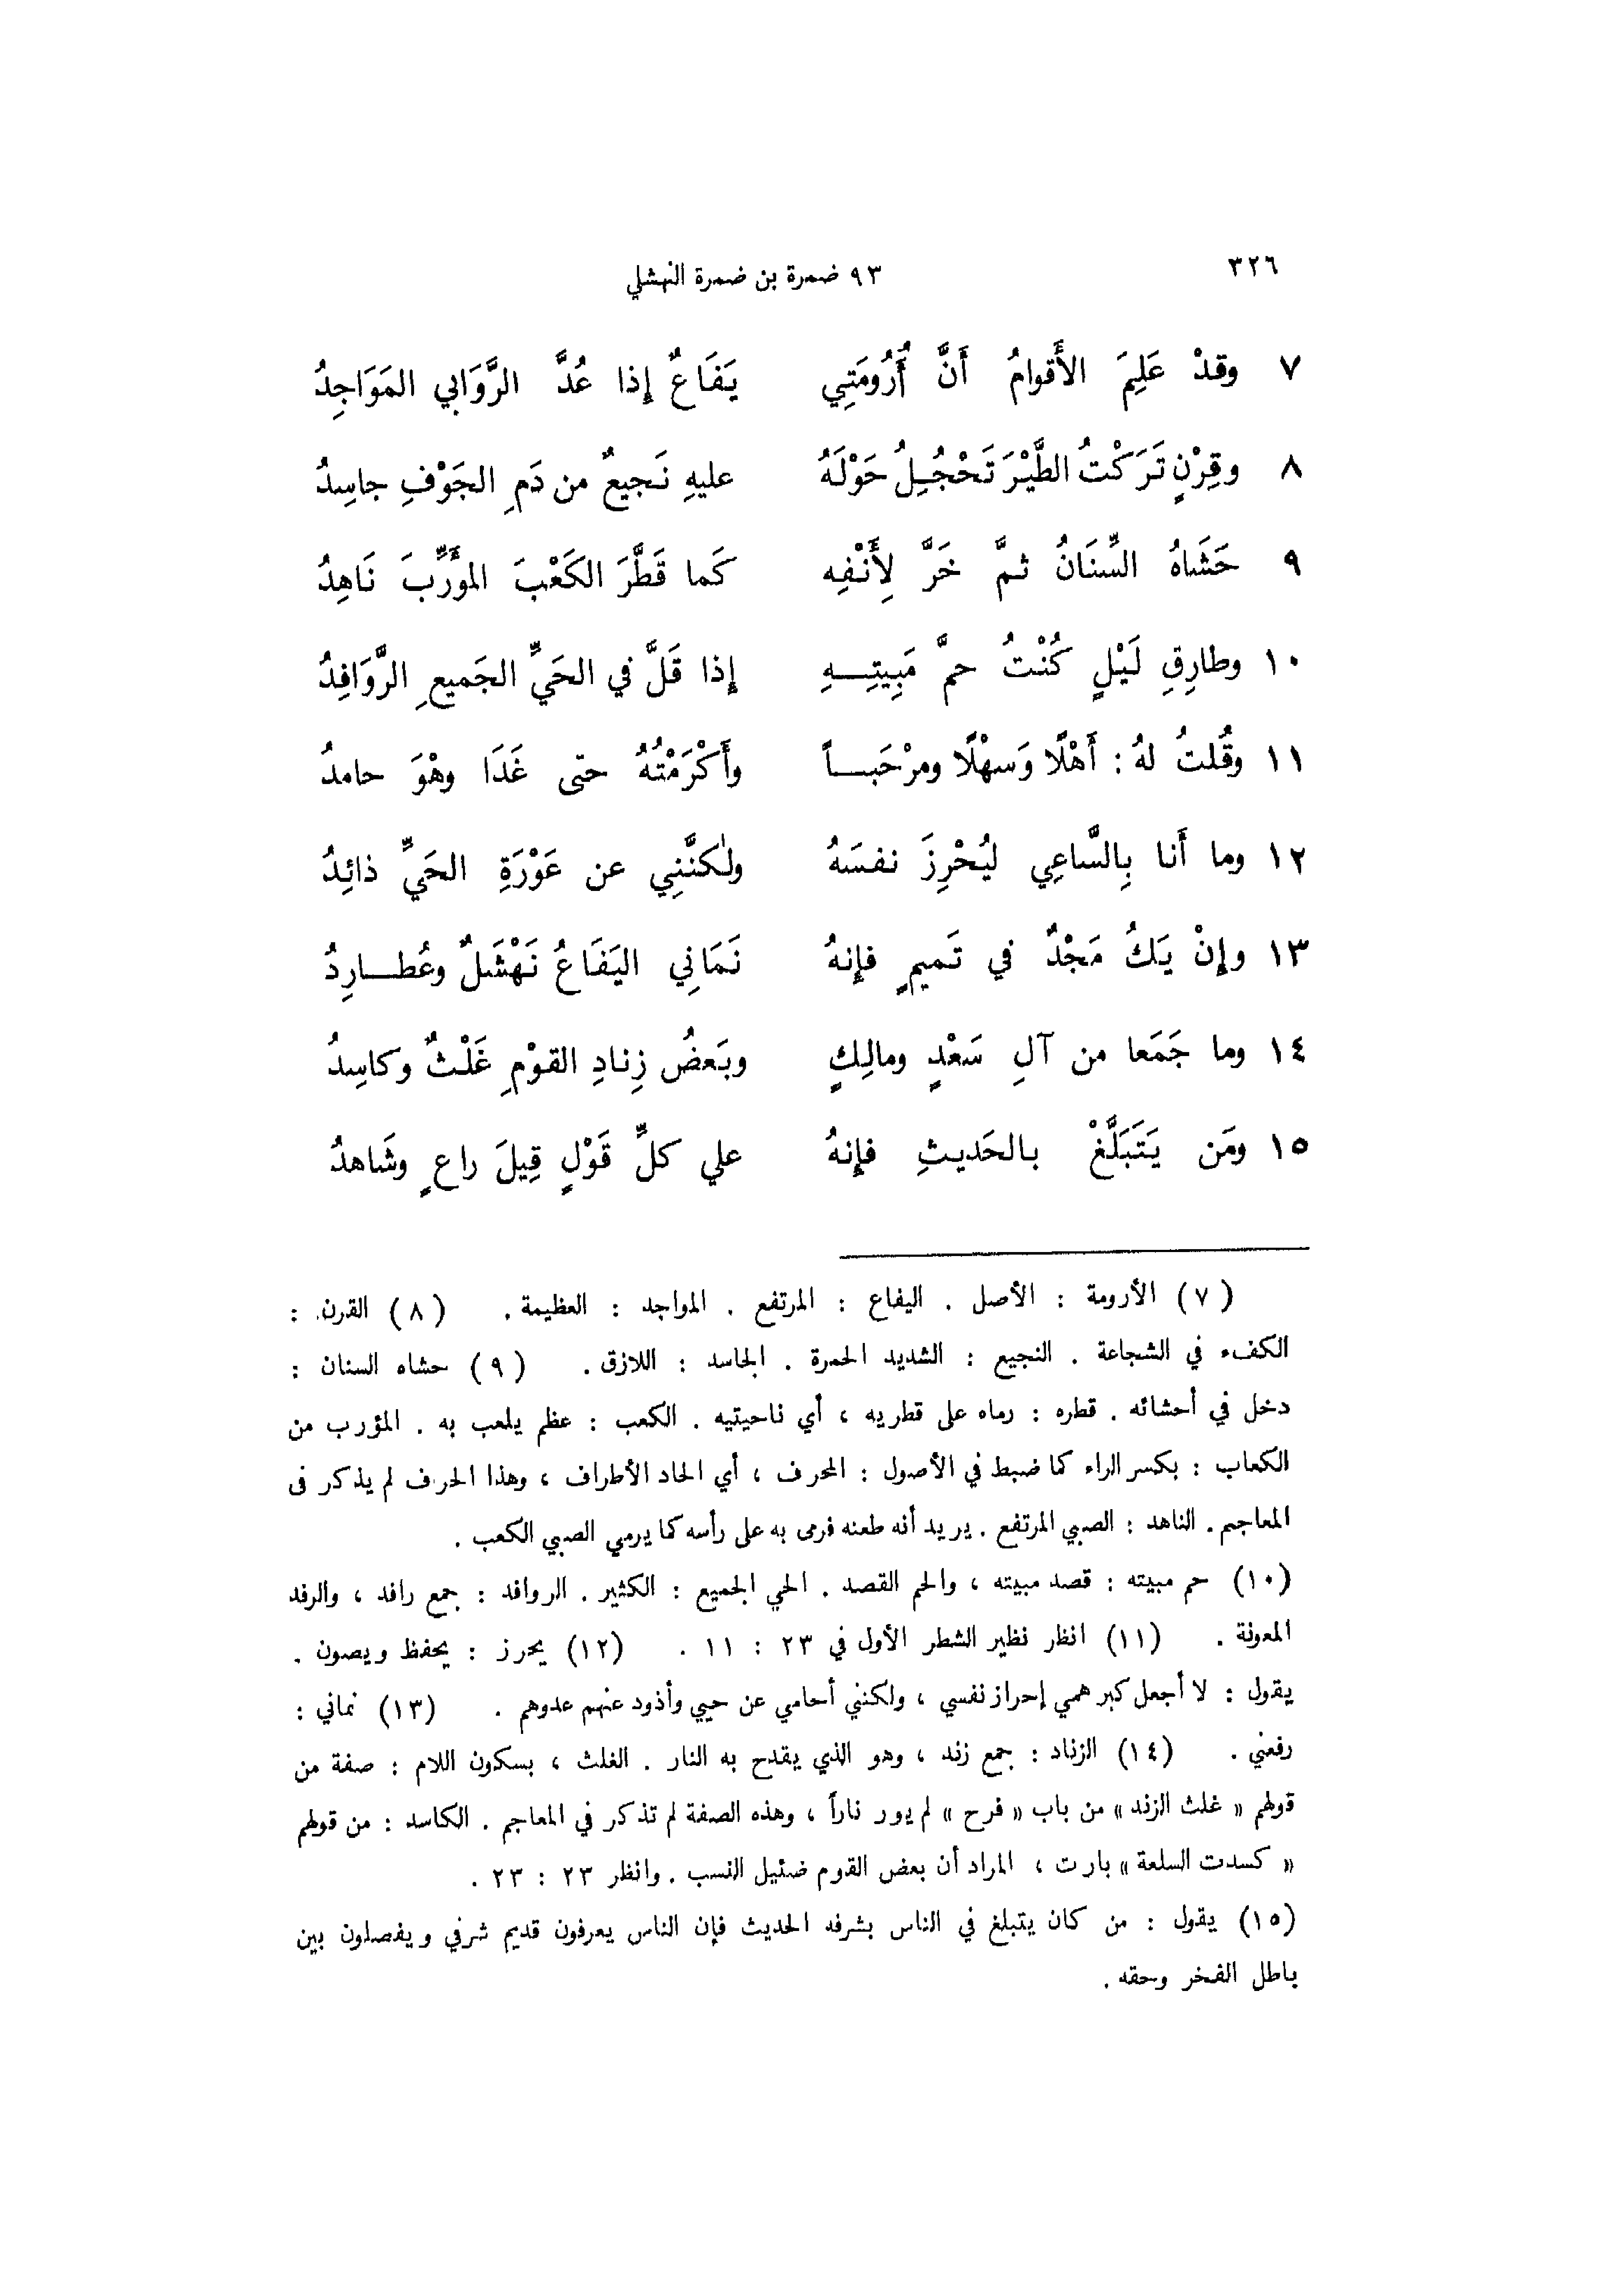 ٣٢٦
٩٣ ضمرة بن ضمرة النهشلي
٧ وقدْ عَلِمَ الأَقوامُ أَنَّ أُرُومَتِي يَفَاعٌ إِذا عُدَّ الرَّوَابي المَوَاجِدُ
٨ وقِرْنٍ تَرَكْتُ الطَّيْرَ تَحْجُلِ‍ُ حَوْلَهُ عليهِ نَجيعٌ من دَمِ الجَوْفِ جاسِدُ
٩ حَشَاهُ السِّنَانُ ثمَّ خَرَّ لِأَنْفِه كَما قَطَّرَ الكَعْبَ المؤَرِّبَ نَاهِدُ
١٠ وطارِقِ لَيْلٍ كُنْتُ حمَّ مَبِيتِهِ إِذا قَلَّ في الحَيِّ الجَميعِ الرَّوَافِدُ
١١ وقُلتُ لهُ : أَهْلًا وَسهْلًا ومرْحَباً وأَكْرَمْتُهُ حتى غَدَا وهْوَ حامدُ
١٢ وما أَنا بِالسَّاعِي ليُحْرِزَ نفسَهُ ولٰكنَّنِي عن عَوْرَةِ الحَيِّ ذائِدُ
١٣ وإِنْ يَكُ مَجْدٌ في تَميمٍ فإِنهُ نَمَانِي اليَفَاعُ نَهْشَلٌ وعُطارِدُ
١٤ وما جَمَعا من آلِ سَعْدٍ ومالِكٍ وبَعضُ زِنادِ القوْمِ غَلْثٌ وكاسِدُ
١٥ ومَن يَتَبَلَّغْ بالحَديثِ فإِنهُ علي كلِّ قَوْلٍ قِيلَ راعٍ وشَاهدُ
( ٧ ) الأرومة : الأصل . اليفاع : المرتفع . المواجد : العظيمة . ( ٨ ) القرن :
الكفء في الشجاعة . النجيع : الشديد الحمرة . الجاسد : اللازق . ( ٩ ) حشاه السنان :
دخل في أحشائه . قطره : رماه على قطريه ، أي ناحيتيه . الكعب : عظم يلعب به . المؤرب من
الكعاب : بكسر الراء كما ضبط في الأصول : المحرف ، أي الحاد الأطراف ، وهذا الحرف لم يذكر فى
المعاجم . الناهد : الصبي المرتفع . يريد أنه طعنه فرمى به على رأسه كما يرمي الصبي الكعب .
(١٠) حم مبيته : قصد مبيته ، والحم القصد . الحي الجميع : الكثير . الروافد : جمع رافد ، والرفد
المعونة . (١١) انظر نظير الشطر الأول في ٢٣ : ١١ . (١٢) يحرز : يحفظ ويصون .
يقول : لا أجعل كبر همي إحراز نفسي ، ولكنني أحامي عن حيي وأذود عنهم عدوهم . (١٣) نماني :
رفعني . (١٤) الزناد : جمع زند ، وهو الذي يقدح به النار . الغلث ، بسكون اللام : صفة من
قولهم « غلث الزند » من باب « فرح » لم يور ناراً ، وهذه الصفة لم تذكر في المعاجم . الكاسد : من قولهم
« كسدت السلعة » بارت ، المراد أن بعض القوم ضئيل النسب . وانظر ٢٣ : ٢٣ .
(١٥) يقول : من كان يتبلغ في الناس بشرفه الحديث فإن الناس يعرفون قديم شرفي ويفصلون بين
باطل الفخر وحقه .